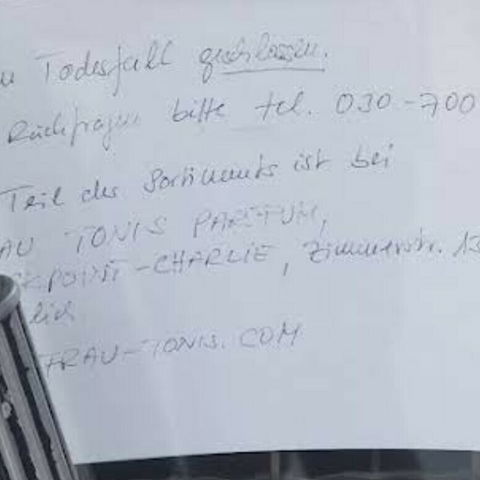 Todesfall geschlossen.
Rückfragen bitte tel. 030-700
Teil des Sortiments ist bei
AU TONIS PARFUM,
POINT-CHARLIE, Zimmerstr. 13
lich
FRAU-TONIS.COM